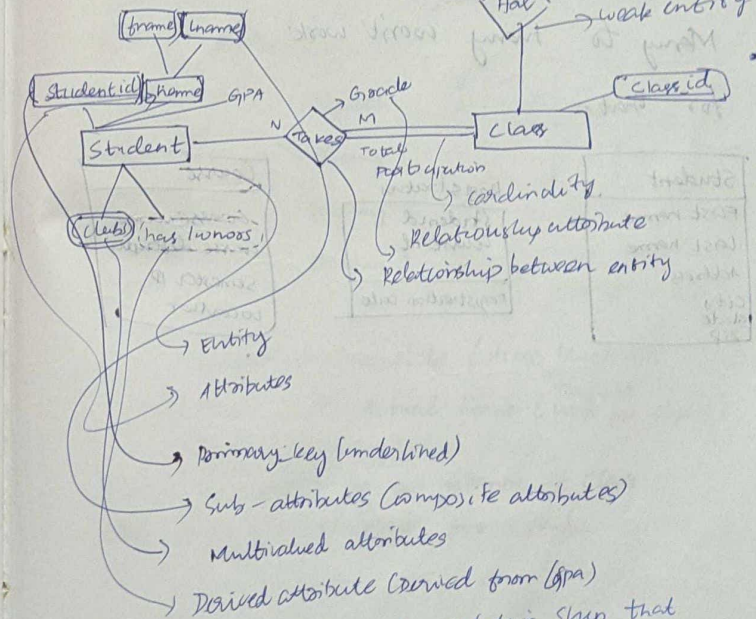 Has
weak entity
fname lname
Student id name GPA
class_id
Student
N Takes M
Grade
Class
Total
participation
cardinality
clubs has honors
Relationship attribute
Relationship between entity
Entity
Attributes
Primary key (underlined)
Sub-attributes (composite attributes)
Multivalued attributes
Derived attribute (Derived from (gpa)
that